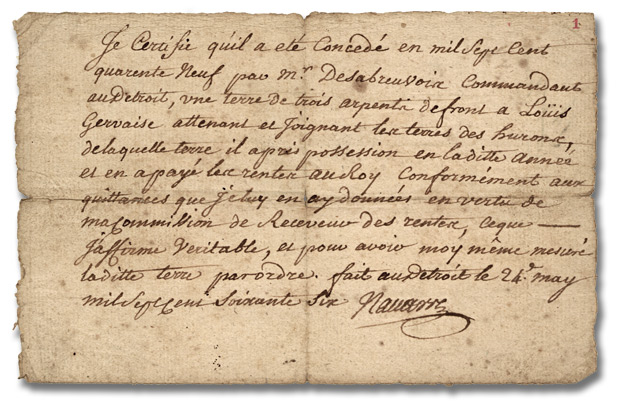 1
Je Certifie quil a eté Concedé en mil Sept Cent
quarente Neuf par mr. Desabreuvoix Commandant
au Detroit, vne terre de trois arpents de front a Loüis
Gervaise attenant et Joignant les terres des hurons,
de laquelle terre il a pris possession en laditte année
et en a payé les rentes au Roy Conformément aux
quittances que Je luy en ay données en vertu de
ma Commission de Receveur des rentes, Ceque
J'affirme Veritable, et pour avoir moy même mesuré
laditte terre par ordre. fait au Detroit le 24e. may
mil Sept Cent Soixante Six Navarre